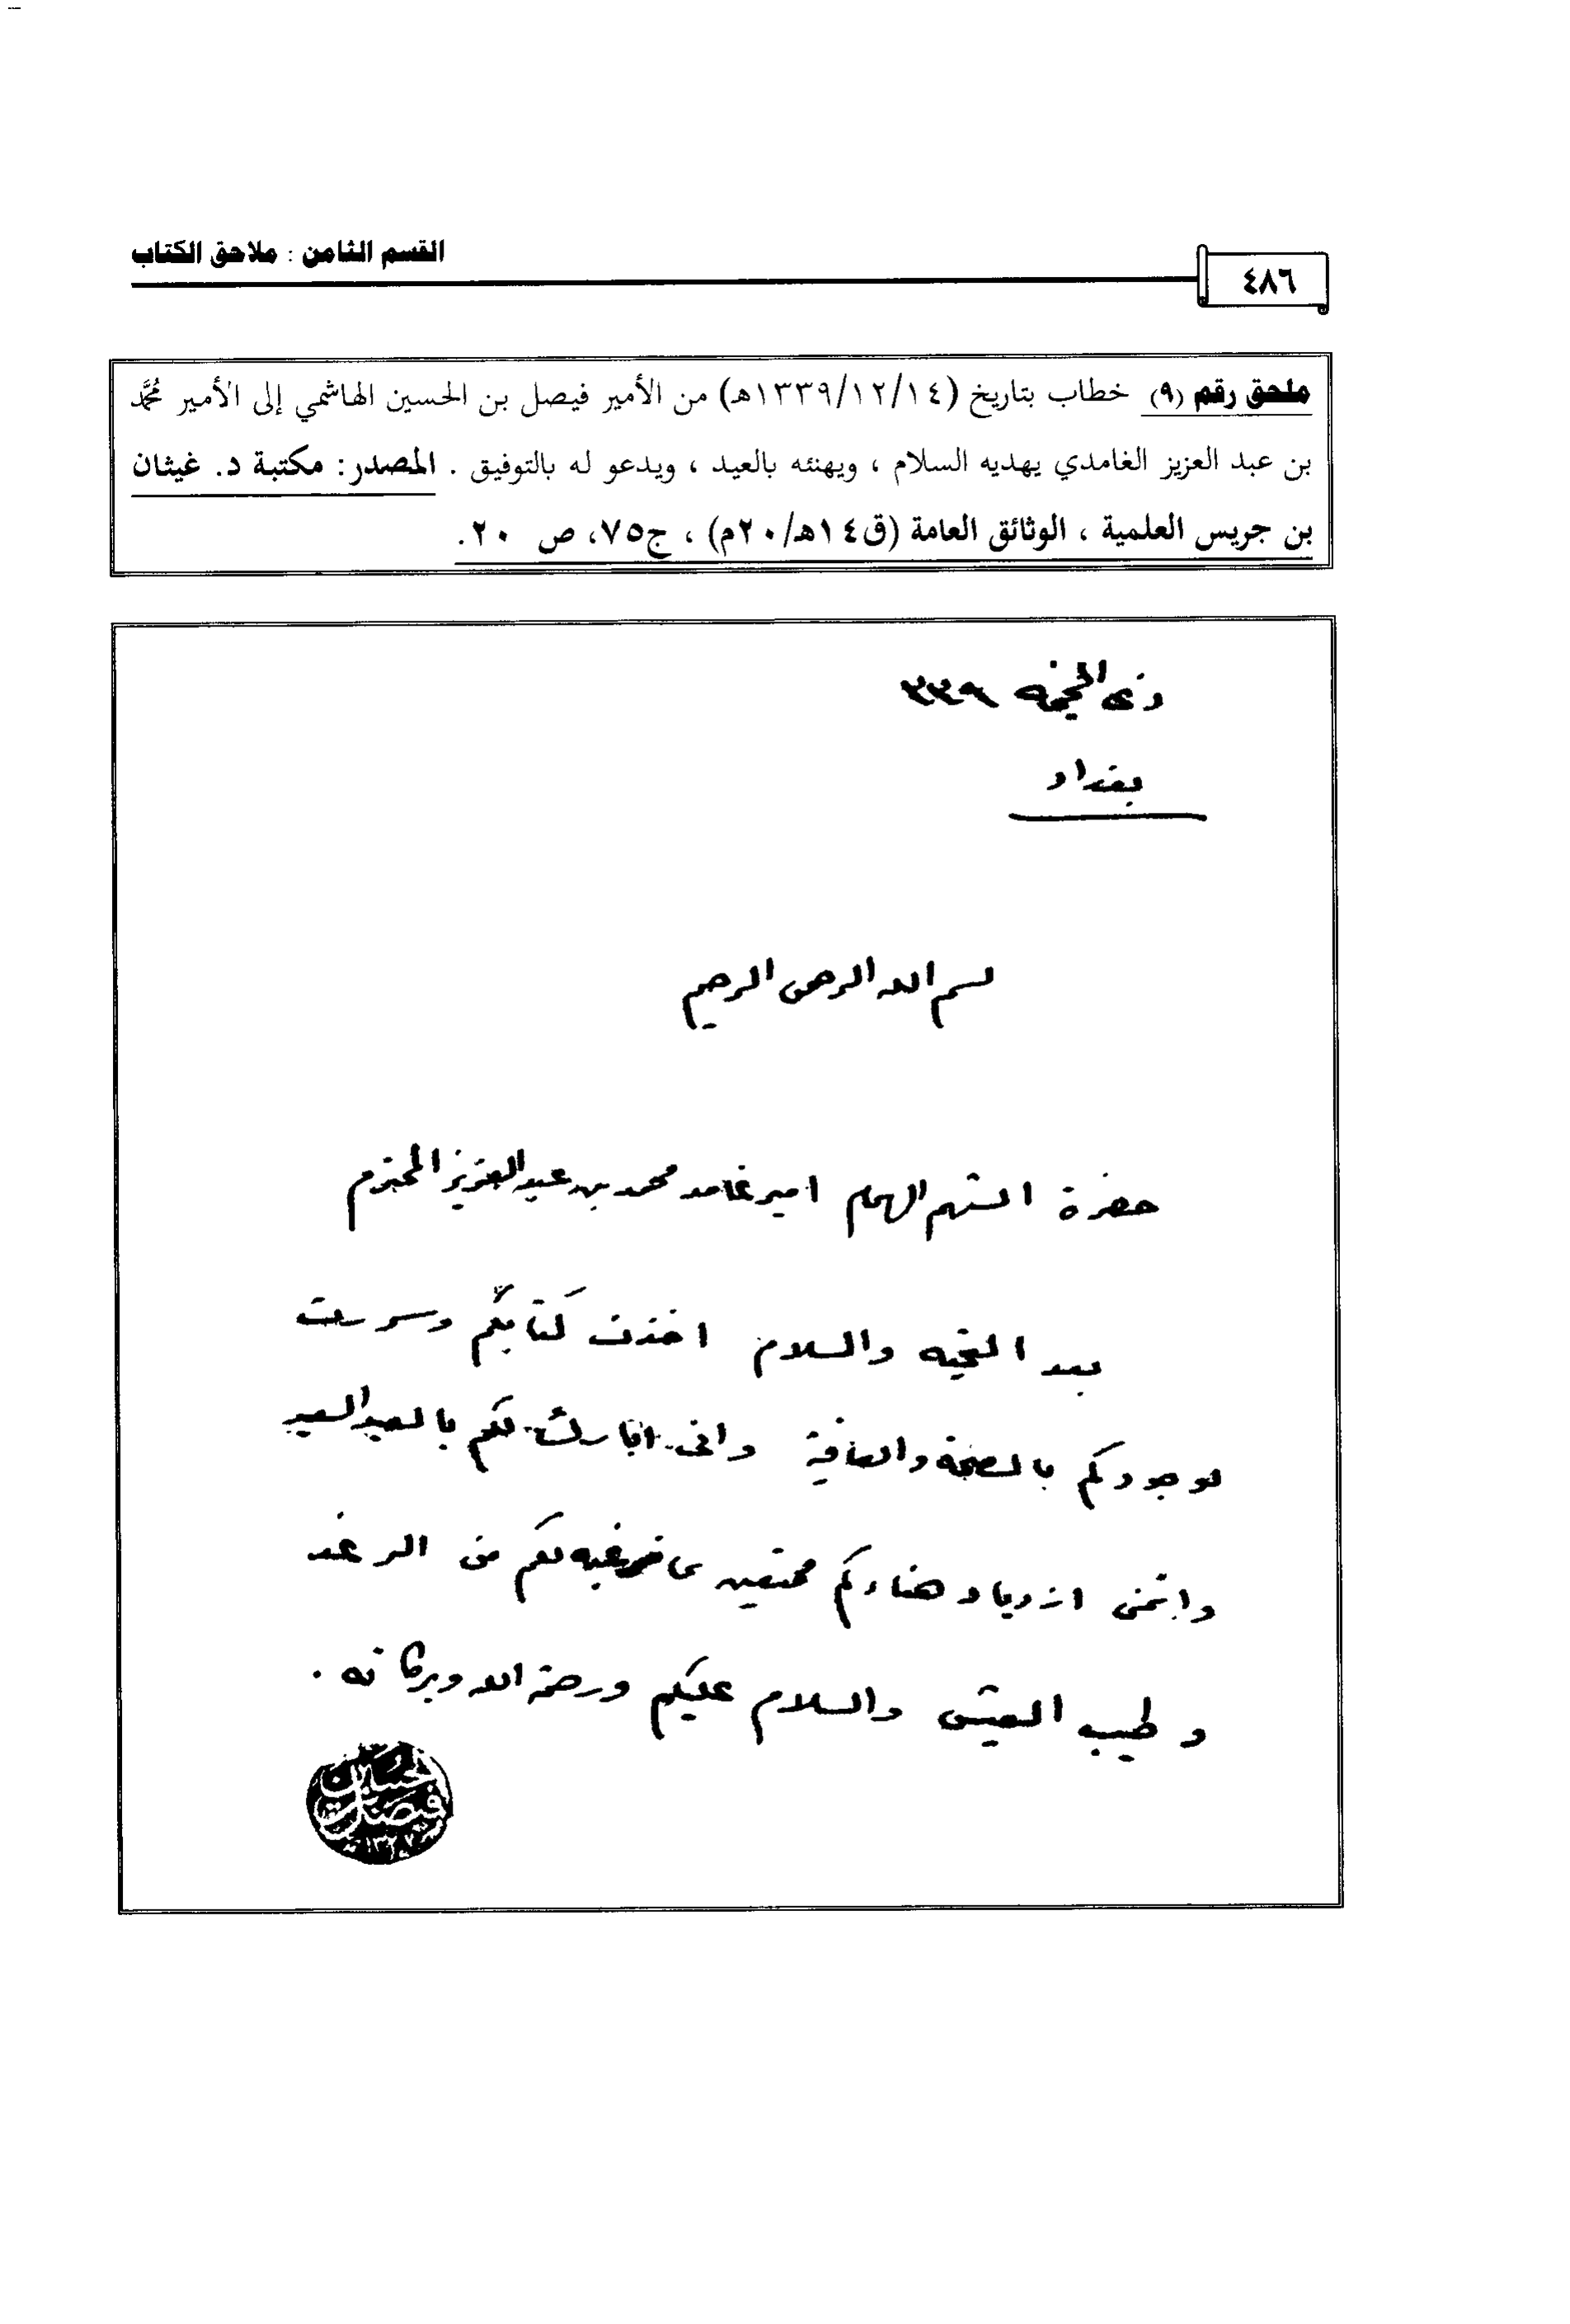 القسم الثامن : ملاحق الكتاب
٤٨٦
ملحق رقم (٩) خطاب بتاريخ (١٣٣٩/١٢/١٤هـ) من الأمير فيصل بن الحسين الهاشمي إلى الأمير مُحمَّد
بن عبد العزيز الغامدي يهديه السلام ، ويهنئه بالعيد ، ويدعو له بالتوفيق . المصدر: مكتبة د. غيثان
بن جريس العلمية ، الوثائق العامة (ق١٤هـ/٢٠م) ، ج٧٥، ص ٢٠.
ذى الحجه ٣٣٩
بغداد
بسم الله الرحمن الرحيم
حضرة الشهم الهمام امير غامد محمد بن عبد العزيز المحترم
بعد التحيه والسلام اخذت كتابكم وسررت
لوجودكم بالصحة والعافية وانى ابارك لكم بالعيد السعيد
واتمنى ازدياد هناءكم لكم من الرغد
وطيب العيش والسلام عليكم ورحمة الله وبركاته .
الحسين
فيصل